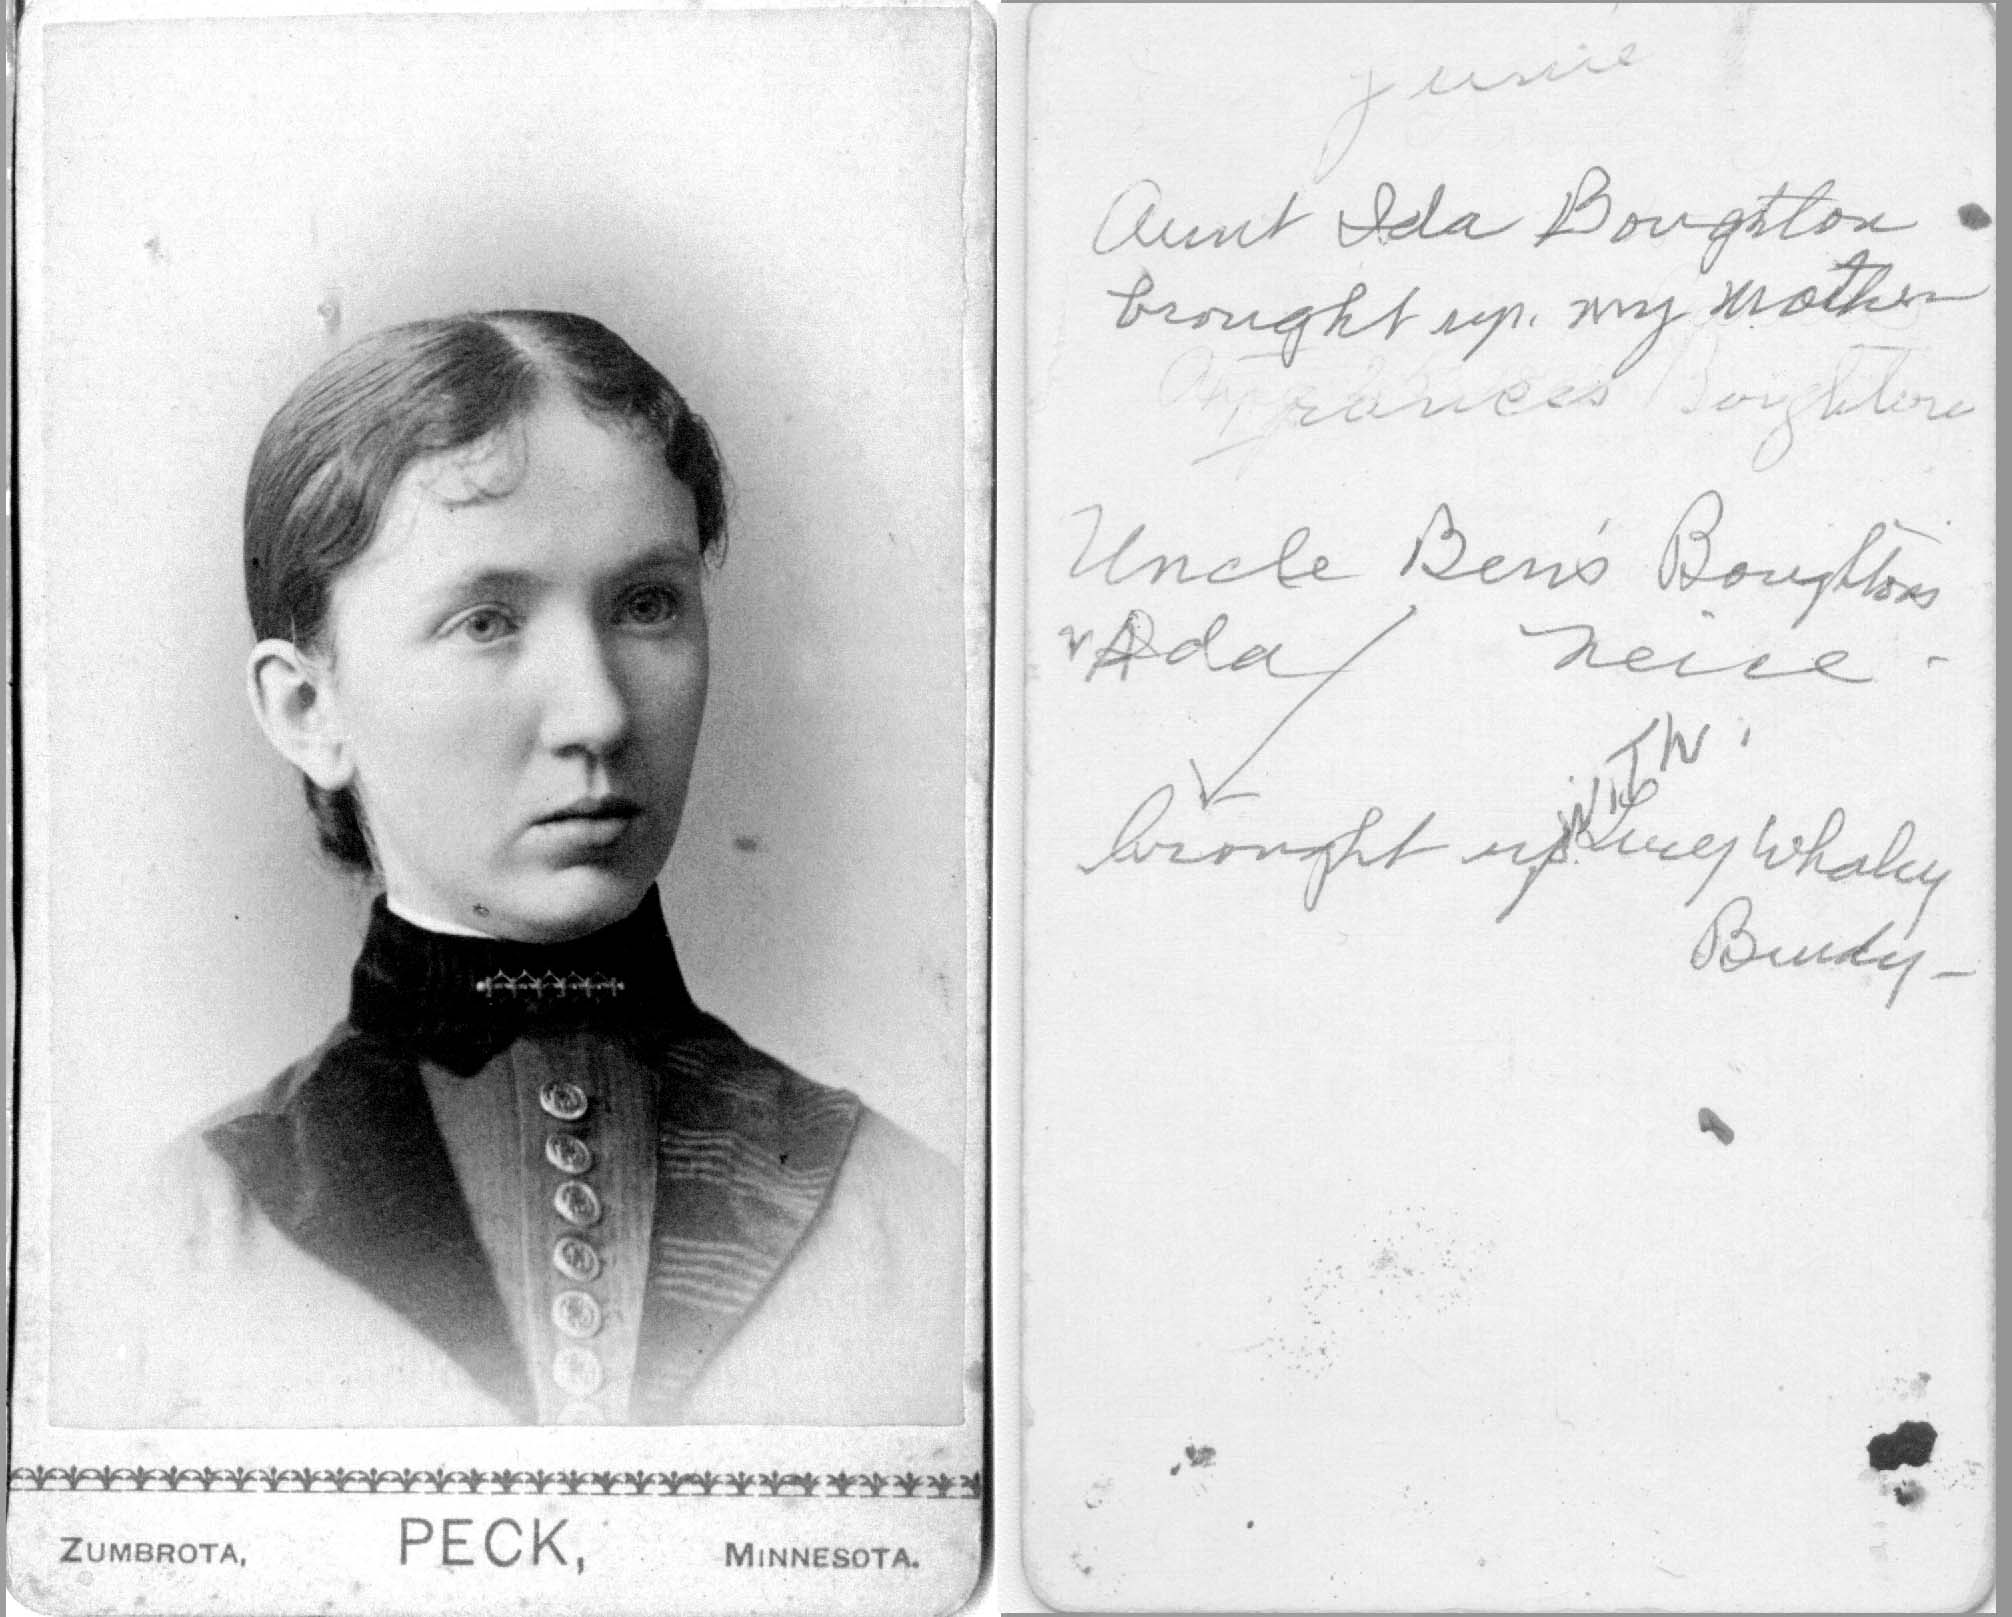 ZUMBROTA, PECK, MINNESOTA.
Aunt Ida Boughton
brought up. my mother
Frances Boughton
Uncle Ben's Boughtons
Ada / neice -
brought up with Lucy Whaley
Bundy -